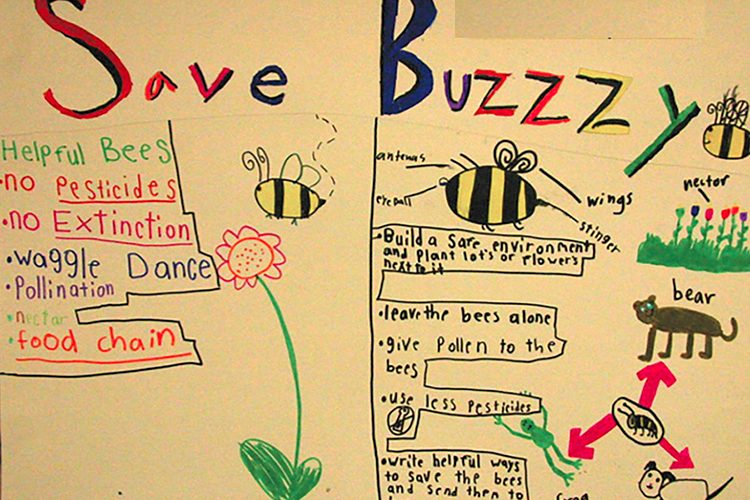 Save Buzzzy
Helpful Bees
•no Pesticides
•no Extinction
•waggle Dance
•Pollination
•nectar
•food chain
antenas
eyeball
wings
stinger
•Build a safe environment
and plant lots of flowers
next to it
•leave the bees alone
•give Pollen to the
bees
•use less Pesticides
•write helpful ways
to save the bees
and send them to
nector
bear
frog